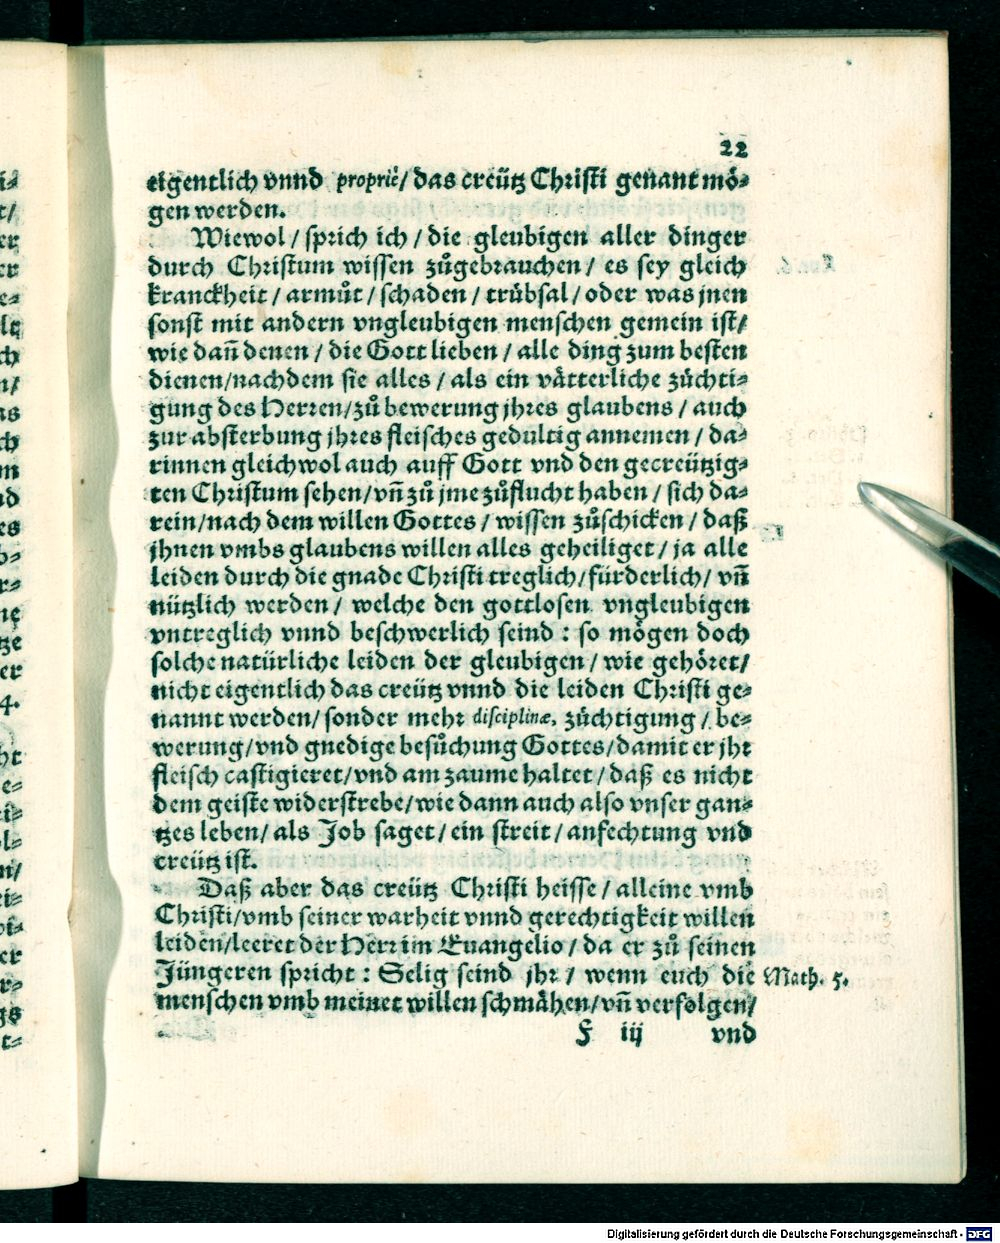 22
eigentlich vnnd propriè/ das creütz Christi genant mö⸗
gen werden.
Wiewol / sprich ich / die gleubigen aller dinger
durch Christum wissen zůgebrauchen / es sey gleich
kranckheit / armůt / schaden / trübsal / oder was jnen
sonst mit andern vngleubigen menschen gemein ist/
wie dañ denen / die Gott lieben / alle ding zum besten
dienen/nachdem sie alles / als ein vätterliche züchti⸗
gung des Herren/zů bewerung jhres glaubens / auch
zur absterbung jhres fleisches gedultig annemen / da⸗
rinnen gleichwol auch auff Gott vnd den gecreützig⸗
ten Christum sehen/vñ zů jme zůflucht haben / sich da⸗
rein/nach dem willen Gottes / wissen zůschicken / daß
jhnen vmbs glaubens willen alles geheiliget / ja alle
leiden durch die gnade Christi treglich/fürderlich/ vñ
nützlich werden / welche den gottlosen vngleubigen
vntreglich vnnd beschwerlich seind : so mögen doch
solche natürliche leiden der gleubigen / wie gehöret/
nicht eigentlich das creütz vnnd die leiden Christi ge⸗
nannt werden/ sonder mehr disciplinæ, züchtigung / be⸗
werung/vnd gnedige besůchung Gottes/damit er jhr
fleisch castigieret/vnd am zaume haltet / daß es nicht
dem geiste widerstrebe/wie dann auch also vnser gan⸗
tzes leben/ als Job saget/ ein streit / anfechtung vnd
creütz ist.
Daß aber das creütz Christi heisse / alleine vmb
Christi/vmb seiner warheit vnnd gerechtigkeit willen
leiden/leeret der Herr im Euangelio / da er zů seinen
Jüngeren spricht : Selig seind jhr / wenn euch die Math. 5.
menschen vmb meinet willen schmähen/vñ verfolgen/
F iij vnd
Digitalisierung gefördert durch die Deutsche Forschungsgemeinschaft - DFG